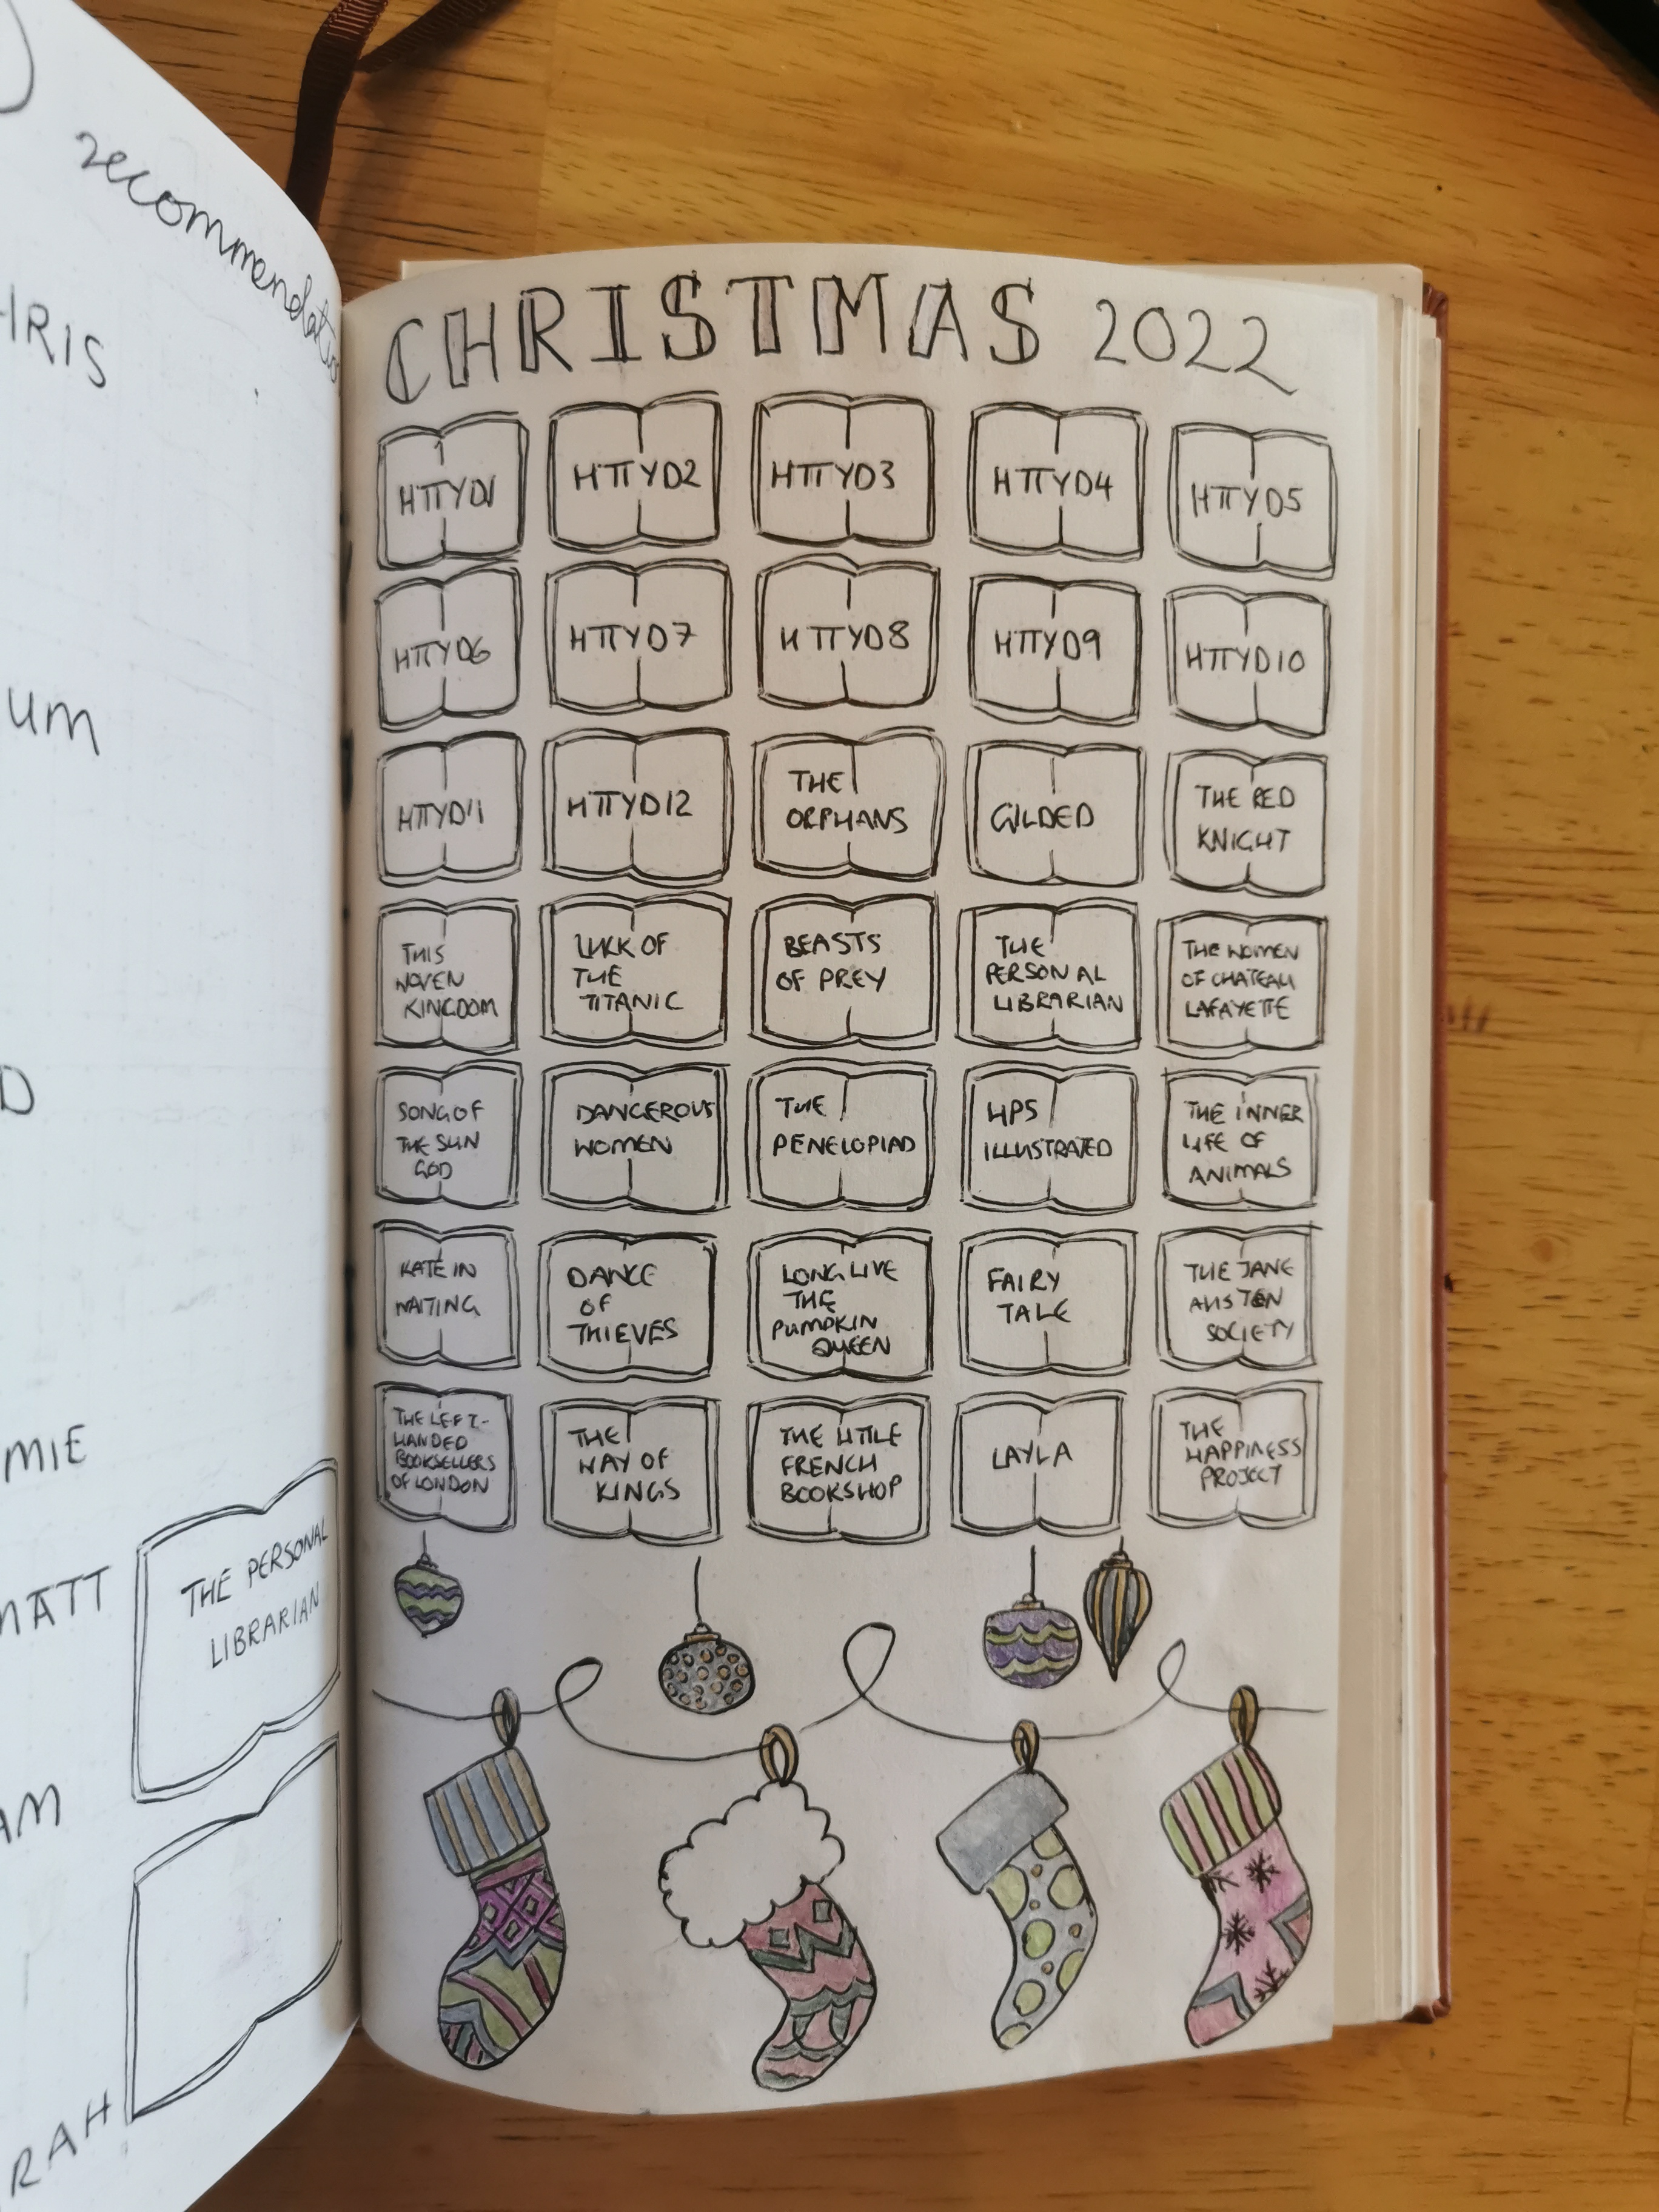 recommendations
HRIS
um
D
MIE
MATT
THE PERSONAL
LIBRARIAN
AM
RAH
CHRISTMAS 2022
HTTYD1
HTTYD2
HTTYD3
HTTYD4
HTTYD5
HTTYD6
HTTYD7
HTTYD8
HTTYD9
HTTYD10
HTTYD11
HTTYD12
THE
ORPHANS
GILDED
THE RED
KNIGHT
THIS
WOVEN
KINGDOM
LUCK OF
THE
TITANIC
BEASTS
OF PREY
THE
PERSONAL
LIBRARIAN
THE WOMEN
OF CHATEAU
LAFAYETTE
SONG OF
THE SUN
GOD
DANGEROUS
WOMEN
THE
PENELOPIAD
HP5
ILLUSTRATED
THE INNER
LIFE OF
ANIMALS
KATE IN
WAITING
DANCE
OF
THIEVES
LONG LIVE
THE
PUMPKIN
QUEEN
FAIRY
TALE
THE JANE
AUSTEN
SOCIETY
THE LEFT-
HANDED
BOOKSELLERS
OF LONDON
THE
WAY OF
KINGS
THE LITTLE
FRENCH
BOOKSHOP
LAYLA
THE
HAPPINESS
PROJECT